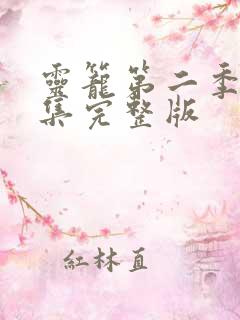 靈籠第二季
集完整版
紅林直